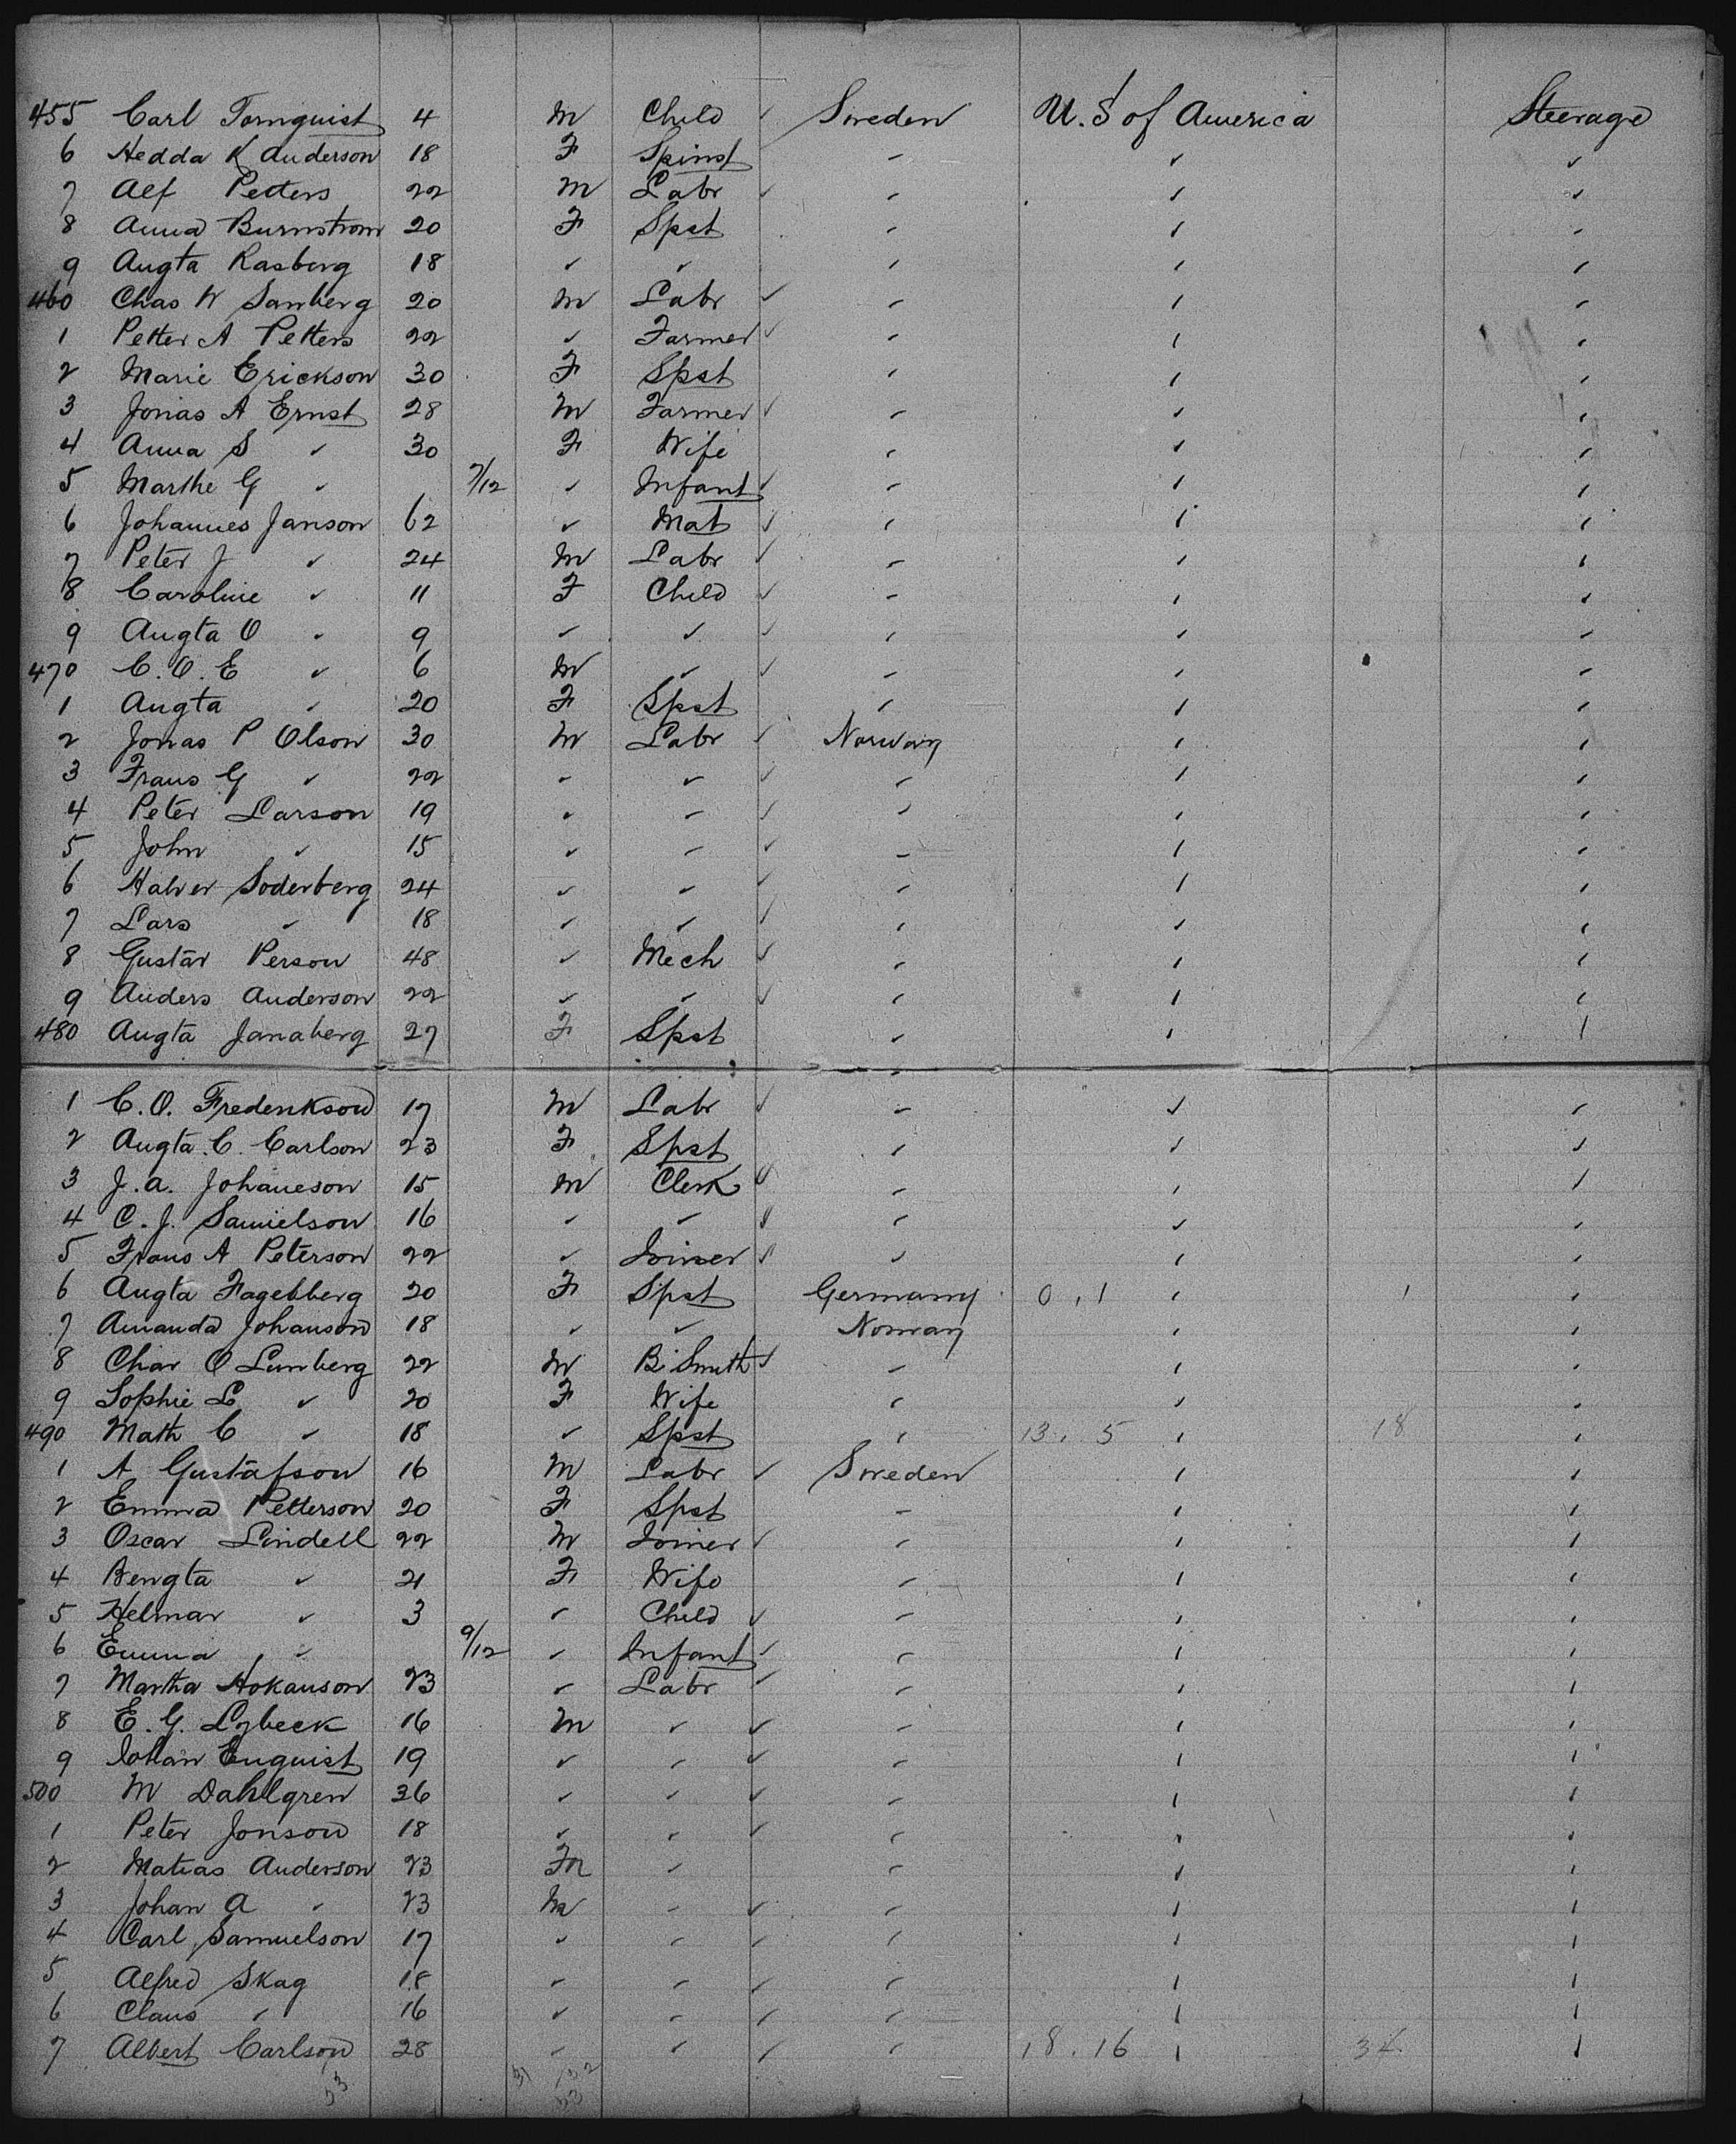 455 Carl Tornquist 4 M Child ✓ Sweden U.S of America Steerage
6 Hedda K Anderson 18 F Spinst " ✓ ✓
7 Alf Petters 22 M Labr ✓ " " "
8 Anna Burnstrom 20 F Spst " " "
9 Augta Rasberg 18 " " " " "
460 Chas W Sanberg 20 M Labr ✓ " " "
1 Petter A Petters 22 " Farmer ✓ " " "
2 Marie Erickson 30 F Spst " " "
3 Jonas A Ernst 28 M Farmer ✓ " " "
4 Anna S " 30 F Wife " " "
5 Marthe G " 7/12 " Infant ✓ " " "
6 Johannes Janson 62 " Mat ✓ " " "
7 Peter J " 24 M Labr ✓ " " "
8 Caroline " 11 F Child ✓ " " "
9 Augta O " 9 " " ✓ " " "
470 C. O. E " 6 M " ✓ " " "
1 Augta " 20 F Spst " " "
2 Jonas P Olson 30 M Labr ✓ Norway " "
3 Frans G " 22 " " ✓ " " "
4 Peter Larson 19 " " ✓ " " "
5 John " 15 " " ✓ " " "
6 Halver Soderberg 24 " " ✓ " " "
7 Lars " 18 " " ✓ " " "
8 Gustav Person 48 " Mech ✓ " " "
9 Anders Anderson 22 " " ✓ " " "
480 Augta Janaberg 27 F Spst " " "
1 C. O. Frederikson 17 M Labr ✓ " " "
2 Augta. C. Carlson 23 F Spst " " "
3 J. A. Johaneson 15 M Clerk ✓ " " "
4 C. J. Samelson 16 " " ✓ " " "
5 Frans A Peterson 22 " Joiner ✓ " " "
6 Augta Fagebberg 20 F Spst Germany 0, 1 " 1 "
7 Amanda Johanson 18 " " Norway " "
8 Char O Lunberg 22 M Bl Smith ✓ " " "
9 Sophie L " 20 F Wife " " "
490 Math C " 18 " Spst " 13, 5 " 18 "
1 A Gustafson 16 M Labr ✓ Sweden " "
2 Emma Petterson 20 F Spst " " "
3 Oscar Lindell 22 M Joiner ✓ " " "
4 Bengta " 21 F Wife " " "
5 Helmar " 3 " Child ✓ " " "
6 Emma " 9/12 " Infant ✓ " " "
7 Martha Hokanson 23 " Labr ✓ " " "
8 E. G. Lybeck 16 M " ✓ " " "
9 Johan Enquist 19 " " ✓ " " "
500 M Dahlgren 36 " " ✓ " " "
1 Peter Jonson 18 " " ✓ " " "
2 Matias Anderson 23 " " " "
3 Johan A " 23 M " ✓ " " "
4 Carl Samuelson 17 " " ✓ " " "
5 Alfred Skag 18 " " ✓ " " "
6 Claus " 16 " " ✓ " " "
7 Albert Carlson 28 " " ✓ " 18. 16 " 34 "
53